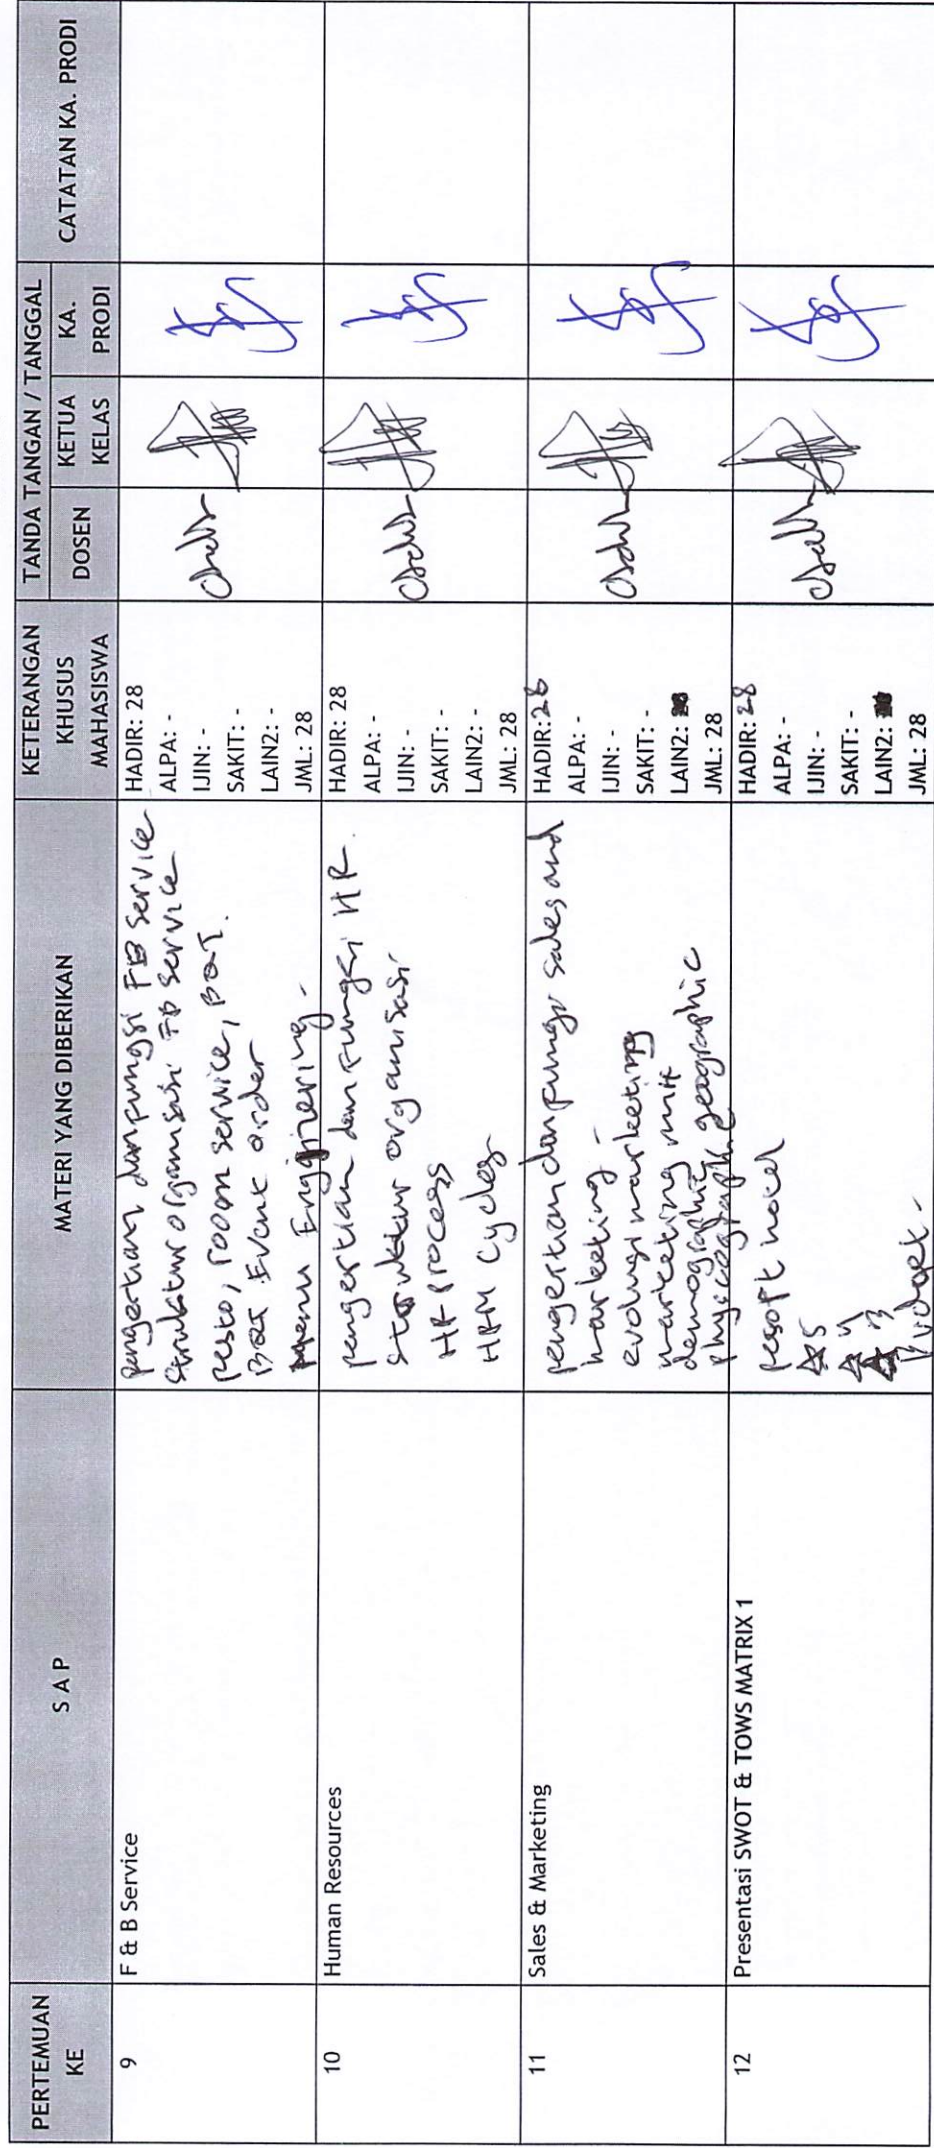 PERTEMUAN
KE
S A P
MATERI YANG DIBERIKAN
KETERANGAN
KHUSUS
MAHASISWA
TANDA TANGAN / TANGGAL
DOSEN
KETUA
KELAS
KA.
PRODI
CATATAN KA. PRODI
9
F & B Service
pengertian dan fungsi FB service
Struktur organisasi FB service
resto, room service, BQT.
BQT Event order
menu Enginering -
HADIR: 28
ALPA: -
IJIN: -
SAKIT: -
LAIN2: -
JML: 28
10
Human Resources
pengertian dan fungsi HR.
struktur organisasi
HR process
HRM Cycles
HADIR: 28
ALPA: -
IJIN: -
SAKIT: -
LAIN2: -
JML: 28
11
Sales & Marketing
pengertian dan fungsi sales and
marketing -
evolusi marketing
marketing mix
demographic geographic
HADIR: 28
ALPA: -
IJIN: -
SAKIT: -
LAIN2:
JML: 28
12
Presentasi SWOT & TOWS MATRIX 1
resort hotel
☆ 5
☆ 4
☆ 3
Budget -
HADIR: 28
ALPA: -
IJIN: -
SAKIT: -
LAIN2:
JML: 28